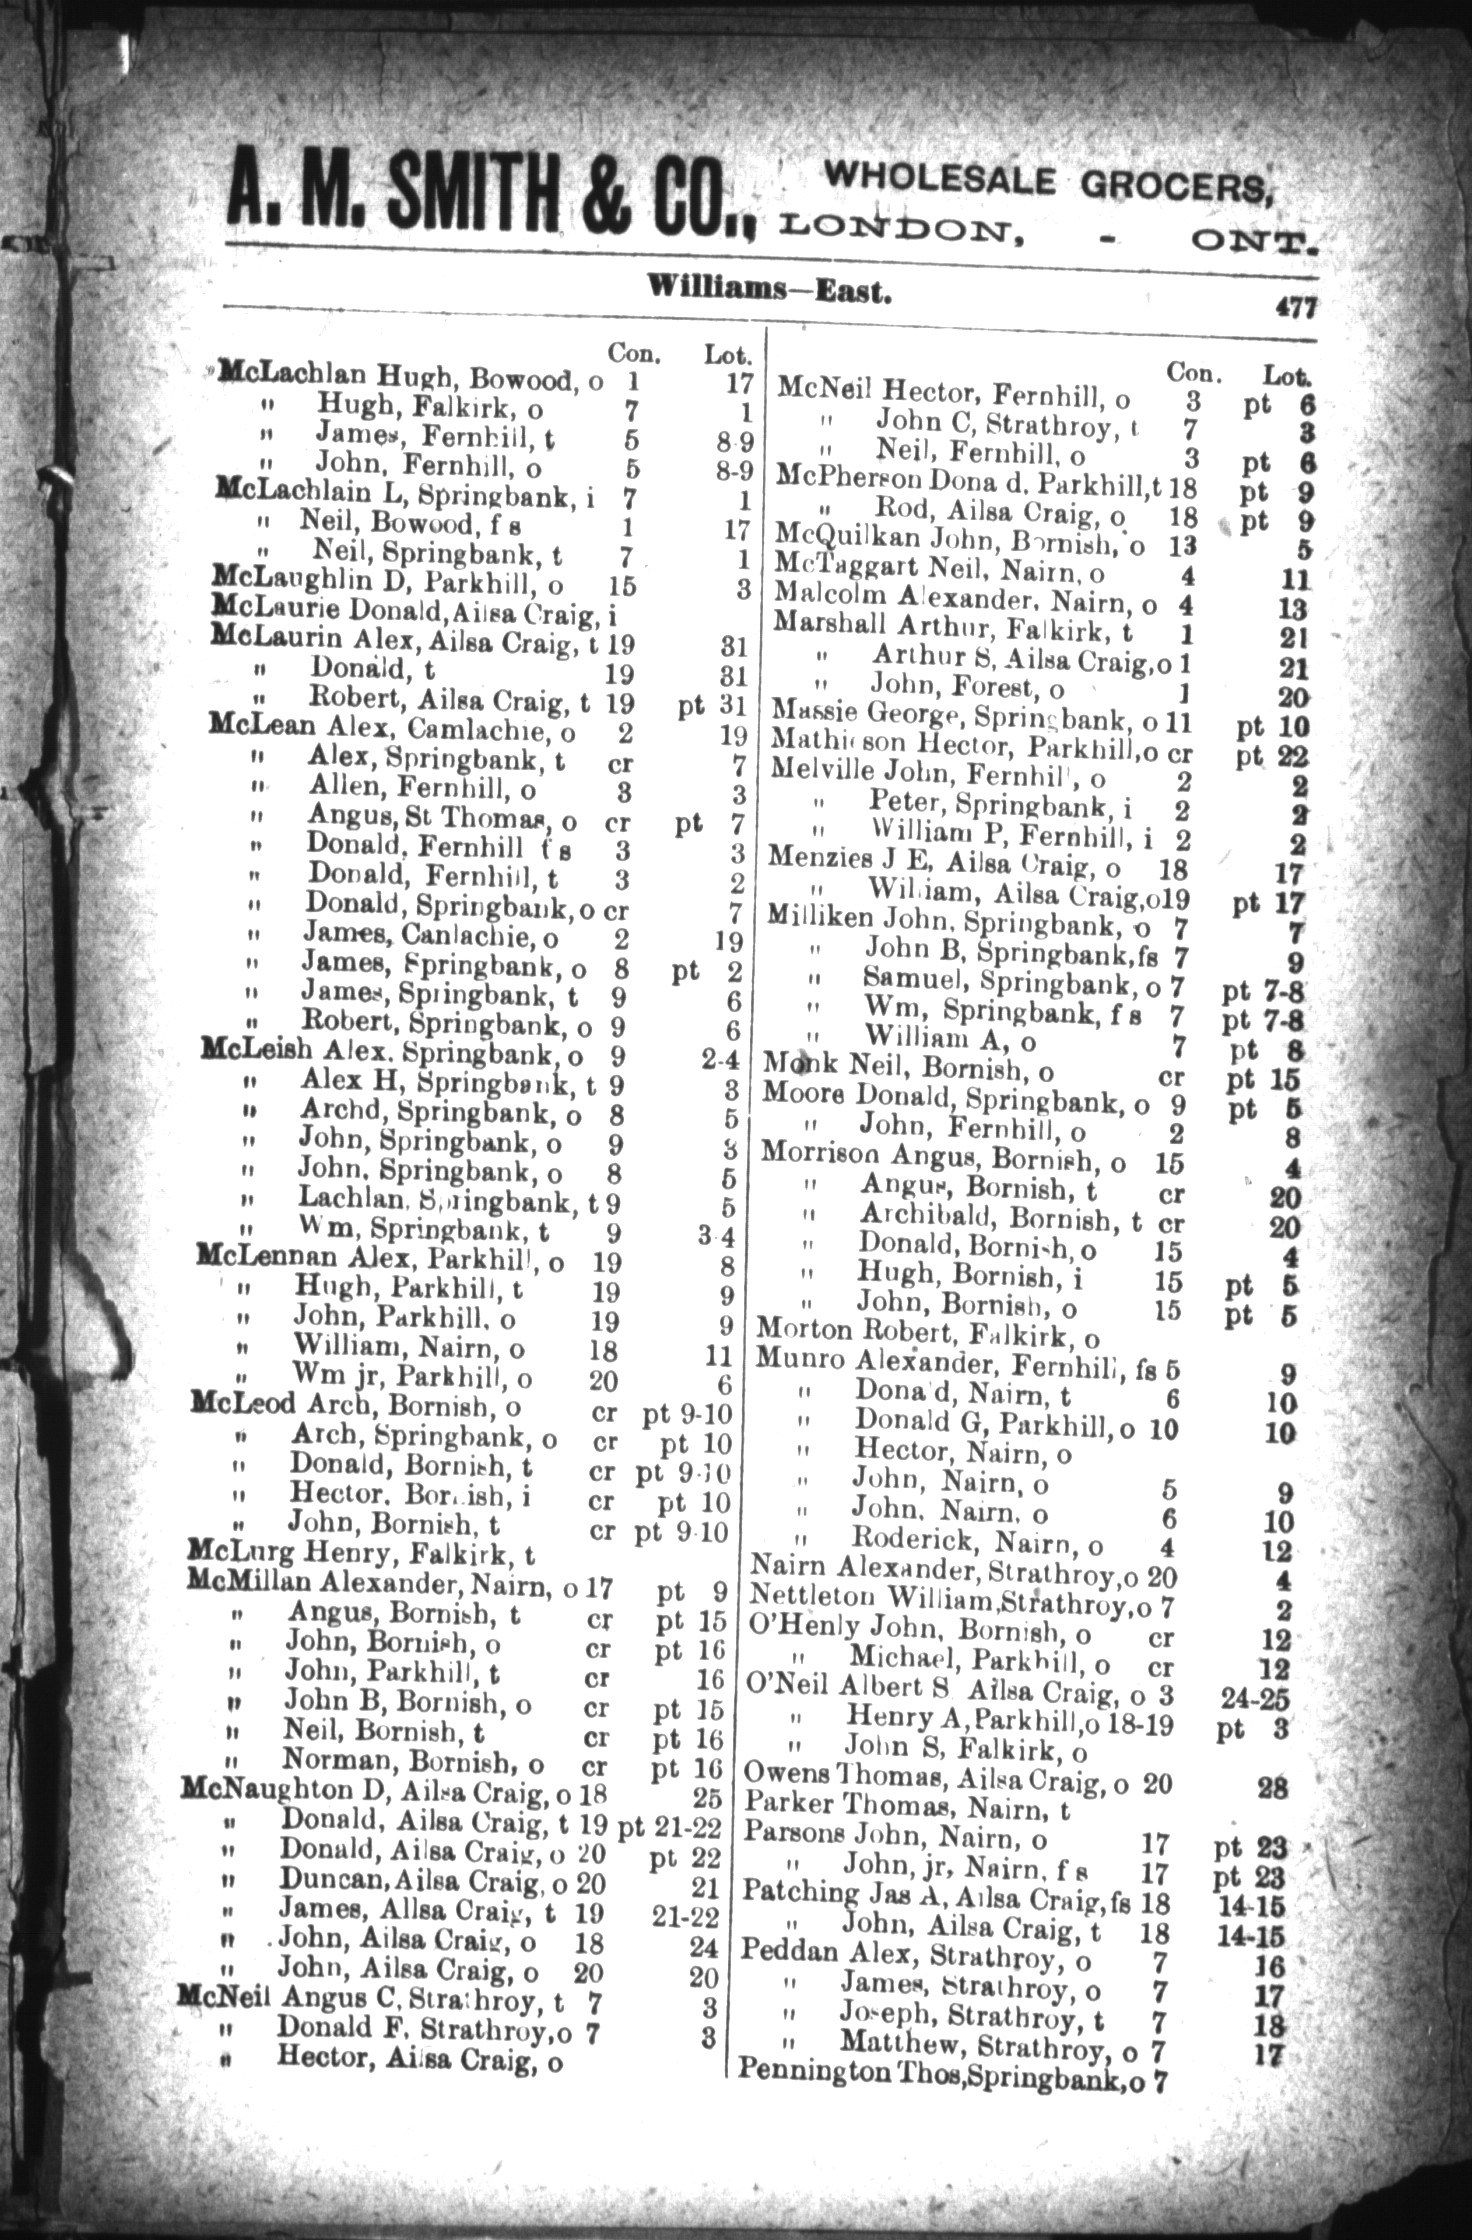 A. M. SMITH & CO., WHOLESALE GROCERS,
LONDON, - ONT.
Williams—East. 477
Con. Lot.
McLachlan Hugh, Bowood, o 1 17
" Hugh, Falkirk, o 7 1
" James, Fernhill, t 5 8-9
" John, Fernhill, o 5 8-9
McLachlain L, Springbank, i 7 1
" Neil, Bowood, f s 1 17
" Neil, Springbank, t 7 1
McLaughlin D, Parkhill, o 15 3
McLaurie Donald, Ailsa Craig, i
McLaurin Alex, Ailsa Craig, t 19 31
" Donald, t 19 31
" Robert, Ailsa Craig, t 19 pt 31
McLean Alex, Camlachie, o 2 19
" Alex, Springbank, t cr 7
" Allen, Fernhill, o 3 3
" Angus, St Thomas, o cr pt 7
" Donald, Fernhill f s 3 3
" Donald, Fernhill, t 3 2
" Donald, Springbank, o cr 7
" James, Canlachie, o 2 19
" James, Springbank, o 8 pt 2
" James, Springbank, t 9 6
" Robert, Springbank, o 9 6
McLeish Alex. Springbank, o 9 2-4
" Alex H, Springbank, t 9 3
" Archd, Springbank, o 8 5
" John, Springbank, o 9 3
" John, Springbank, o 8 5
" Lachlan, Springbank, t 9 5
" Wm, Springbank, t 9 3-4
McLennan Alex, Parkhill, o 19 8
" Hugh, Parkhill, t 19 9
" John, Parkhill, o 19 9
" William, Nairn, o 18 11
" Wm jr, Parkhill, o 20 6
McLeod Arch, Bornish, o cr pt 9-10
" Arch, Springbank, o cr pt 10
" Donald, Bornish, t cr pt 9-10
" Hector, Bornish, i cr pt 10
" John, Bornish, t cr pt 9-10
McLurg Henry, Falkirk, t
McMillan Alexander, Nairn, o 17 pt 9
" Angus, Bornish, t cr pt 15
" John, Bornish, o cr pt 16
" John, Parkhill, t cr 16
" John B, Bornish, o cr pt 15
" Neil, Bornish, t cr pt 16
" Norman, Bornish, o cr pt 16
McNaughton D, Ailsa Craig, o 18 25
" Donald, Ailsa Craig, t 19 pt 21-22
" Donald, Ailsa Craig, o 20 pt 22
" Duncan, Ailsa Craig, o 20 21
" James, Allsa Craig, t 19 21-22
" John, Ailsa Craig, o 18 24
" John, Ailsa Craig, o 20 20
McNeil Angus C, Strathroy, t 7 3
" Donald F, Strathroy, o 7 3
" Hector, Ailsa Craig, o
Con. Lot.
McNeil Hector, Fernhill, o 3 pt 6
" John C, Strathroy, t 7 3
" Neil, Fernhill, o 3 pt 6
McPherson Donald, Parkhill, t 18 pt 9
" Rod, Ailsa Craig, o 18 pt 9
McQuilkan John, Bornish, o 13 5
McTaggart Neil, Nairn, o 4 11
Malcolm Alexander, Nairn, o 4 13
Marshall Arthur, Falkirk, t 1 21
" Arthur S, Ailsa Craig, o 1 21
" John, Forest, o 1 20
Massie George, Springbank, o 11 pt 10
Mathieson Hector, Parkhill, o cr pt 22
Melville John, Fernhill, o 2 2
" Peter, Springbank, i 2 2
" William P, Fernhill, i 2 2
Menzies J E, Ailsa Craig, o 18 17
" William, Ailsa Craig, o 19 pt 17
Milliken John, Springbank, o 7 7
" John B, Springbank, fs 7 9
" Samuel, Springbank, o 7 pt 7-8
" Wm, Springbank, f s 7 pt 7-8
" William A, o 7 pt 8
Monk Neil, Bornish, o cr pt 15
Moore Donald, Springbank, o 9 pt 5
" John, Fernhill, o 2 8
Morrison Angus, Bornish, o 15 4
" Angus, Bornish, t cr 20
" Archibald, Bornish, t cr 20
" Donald, Bornish, o 15 4
" Hugh, Bornish, i 15 pt 5
" John, Bornish, o 15 pt 5
Morton Robert, Falkirk, o
Munro Alexander, Fernhill, fs 5 9
" Donald, Nairn, t 6 10
" Donald G, Parkhill, o 10 10
" Hector, Nairn, o
" John, Nairn, o 5 9
" John, Nairn, o 6 10
" Roderick, Nairn, o 4 12
Nairn Alexander, Strathroy, o 20 4
Nettleton William, Strathroy, o 7 2
O'Henly John, Bornish, o cr 12
" Michael, Parkhill, o cr 12
O'Neil Albert S Ailsa Craig, o 3 24-25
" Henry A, Parkhill, o 18-19 pt 3
" John S, Falkirk, o
Owens Thomas, Ailsa Craig, o 20 28
Parker Thomas, Nairn, t
Parsons John, Nairn, o 17 pt 23
" John, jr, Nairn, f s 17 pt 23
Patching Jas A, Ailsa Craig, fs 18 14-15
" John, Ailsa Craig, t 18 14-15
Peddan Alex, Strathroy, o 7 16
" James, Strathroy, o 7 17
" Joseph, Strathroy, t 7 18
" Matthew, Strathroy, o 7 17
Pennington Thos, Springbank, o 7